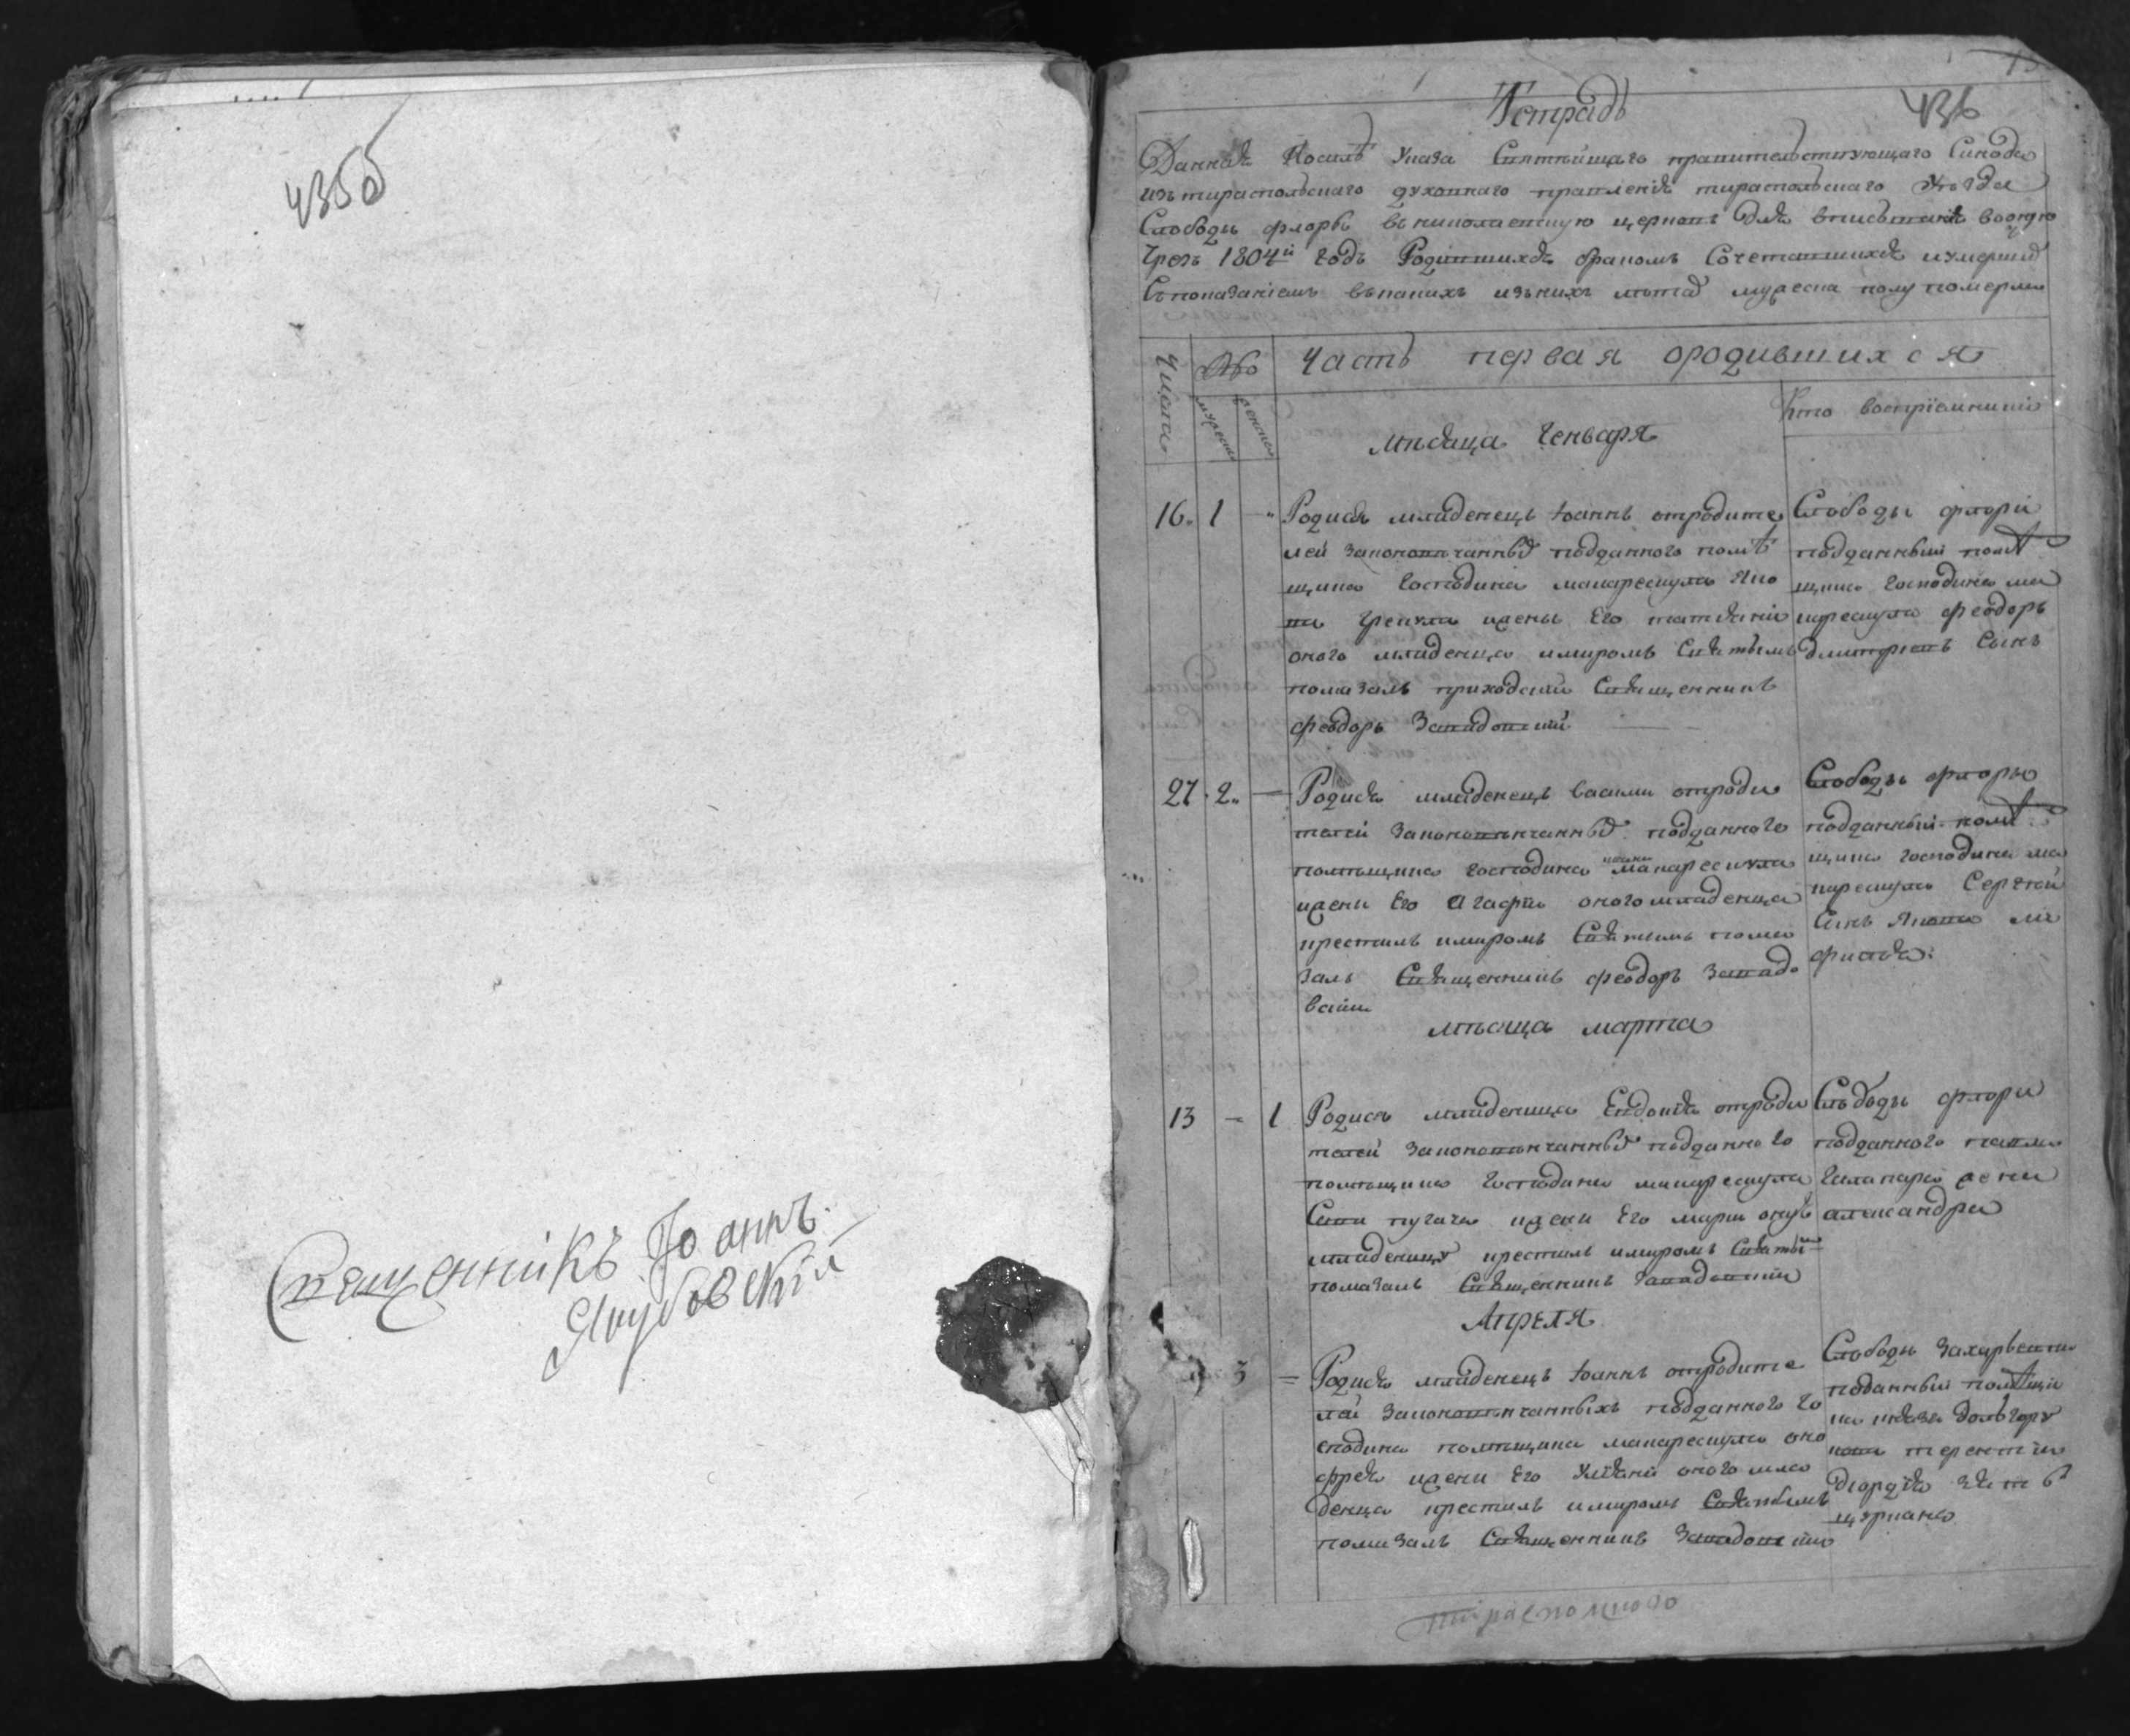 435об
Священникъ Іоаннъ
Якубовскій
436
Тетрадь
Данная Посилѣ Указа Святейшаго правителствующаго Синода
изъ тираспольскаго духовнаго правленія тираспольскаго уѣзда
Слободы флоры въ николаевскую церковь для вписованія вооную
Чрезъ 1804й годъ Родившихся бракомъ Сочетавшихся иумершихъ
Съ показаніемъ
Числа
Або
мужеска
женска
Часть первая ородившихся
Кто воспріемники
мѣсяца Генваря
16. 1 Родися младенецъ Іоаннъ отродите
лей законовѣнчанныхъ подданного помѣ
щика Господина макарескула Яко
ва жены Его татіяни
оного младенца имиромъ Святымъ
помазалъ приходскій Священникъ
феодоръ Западовскій
Слободы флори
подданный помѣ
щика господина ма
карескула феодоръ
Сынъ
27. 2. Родися младенецъ васили отроди
телей законовѣнчанныхъ подданного
помѣщика Господина макарескула
жени Его Агафіи оного младенца
крестилъ имиромъ Святымъ пома
залъ Священникъ феодоръ Западо
вскій
Слободы флоры
подданный помѣ
щика господина ма
карескула Сергей
Синъ Якова
мѣсяца марта
13 1 Родися младеница Евдокія отроди
телей законовѣнчанныхъ подданного
помѣщика Господина макарескула
жени Его марии
младеницу крестилъ имиромъ Святымъ
помазалъ Священникъ Западовскій
Слободы флори
подданного павла
жени
александра
Апреля
3 Родися младенецъ Іоаннъ отродите
лей законовѣнчанныхъ подданного го
сподина помѣщика макарескула оно
фрея жени Его Уліяни оного мла
денца крестилъ имиромъ Святымъ
помазалъ Священникъ Западовскій
Слободы
поданный помѣщи
ка князя долгору
кова терентій
тираспольского